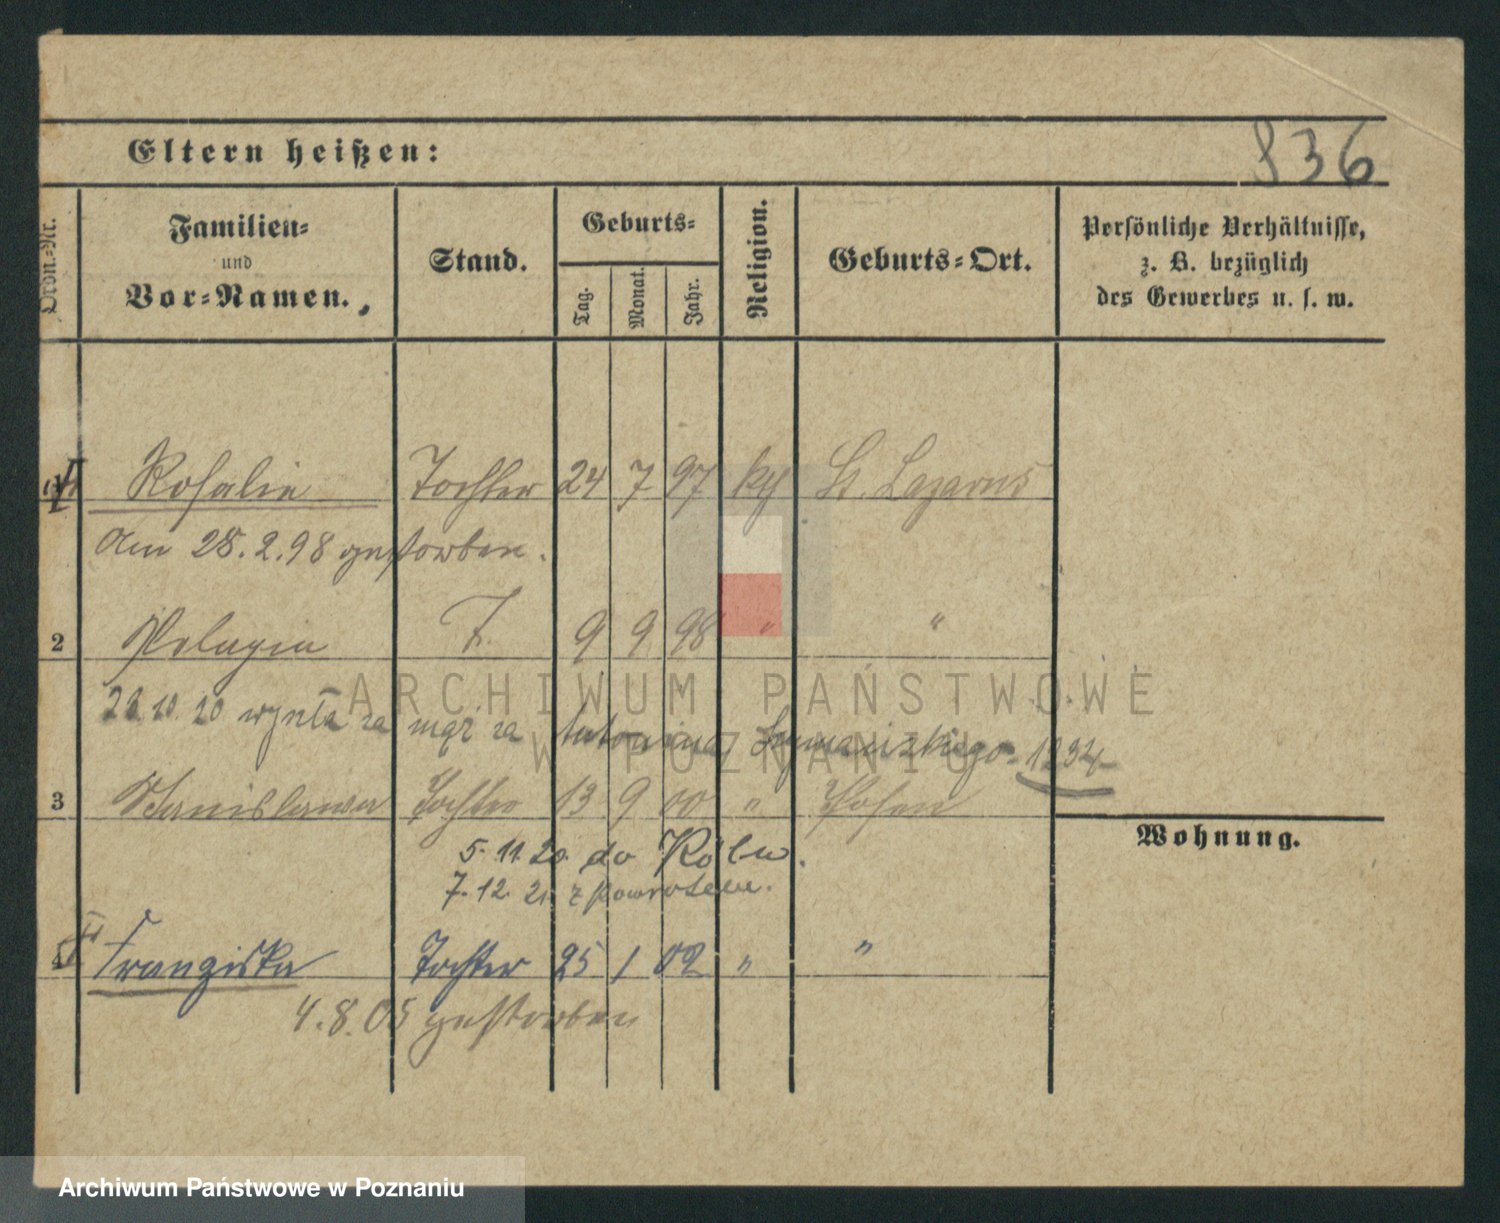 Eltern heißen:
836
Ordn.-Nr.
Familien-
und
Vor-Namen.
Stand.
Geburts-
Tag.
Monat.
Jahr.
Religion.
Geburts-Ort.
Persönliche Verhältnisse,
z. B. bezüglich
des Gewerbes u. s. w.
Rosalie Tochter 24 7 97 St. Lazarus
Am 28.2.98 gestorben.
2 Pelagia T. 9 9 98 " "
ARCHIWUM PAŃSTWOWE
W POZNANIU
10. 20 za mąż za Antoniego 1894
3 Stanislawa Tochter 13 9 00 " Posen
5. 11. 20. do Köln.
7. 12. 21. z powrotem.
Wohnung.
4 Franziska Tochter 25 1 02 " "
4.8.05 gestorben
Archiwum Państwowe w Poznaniu